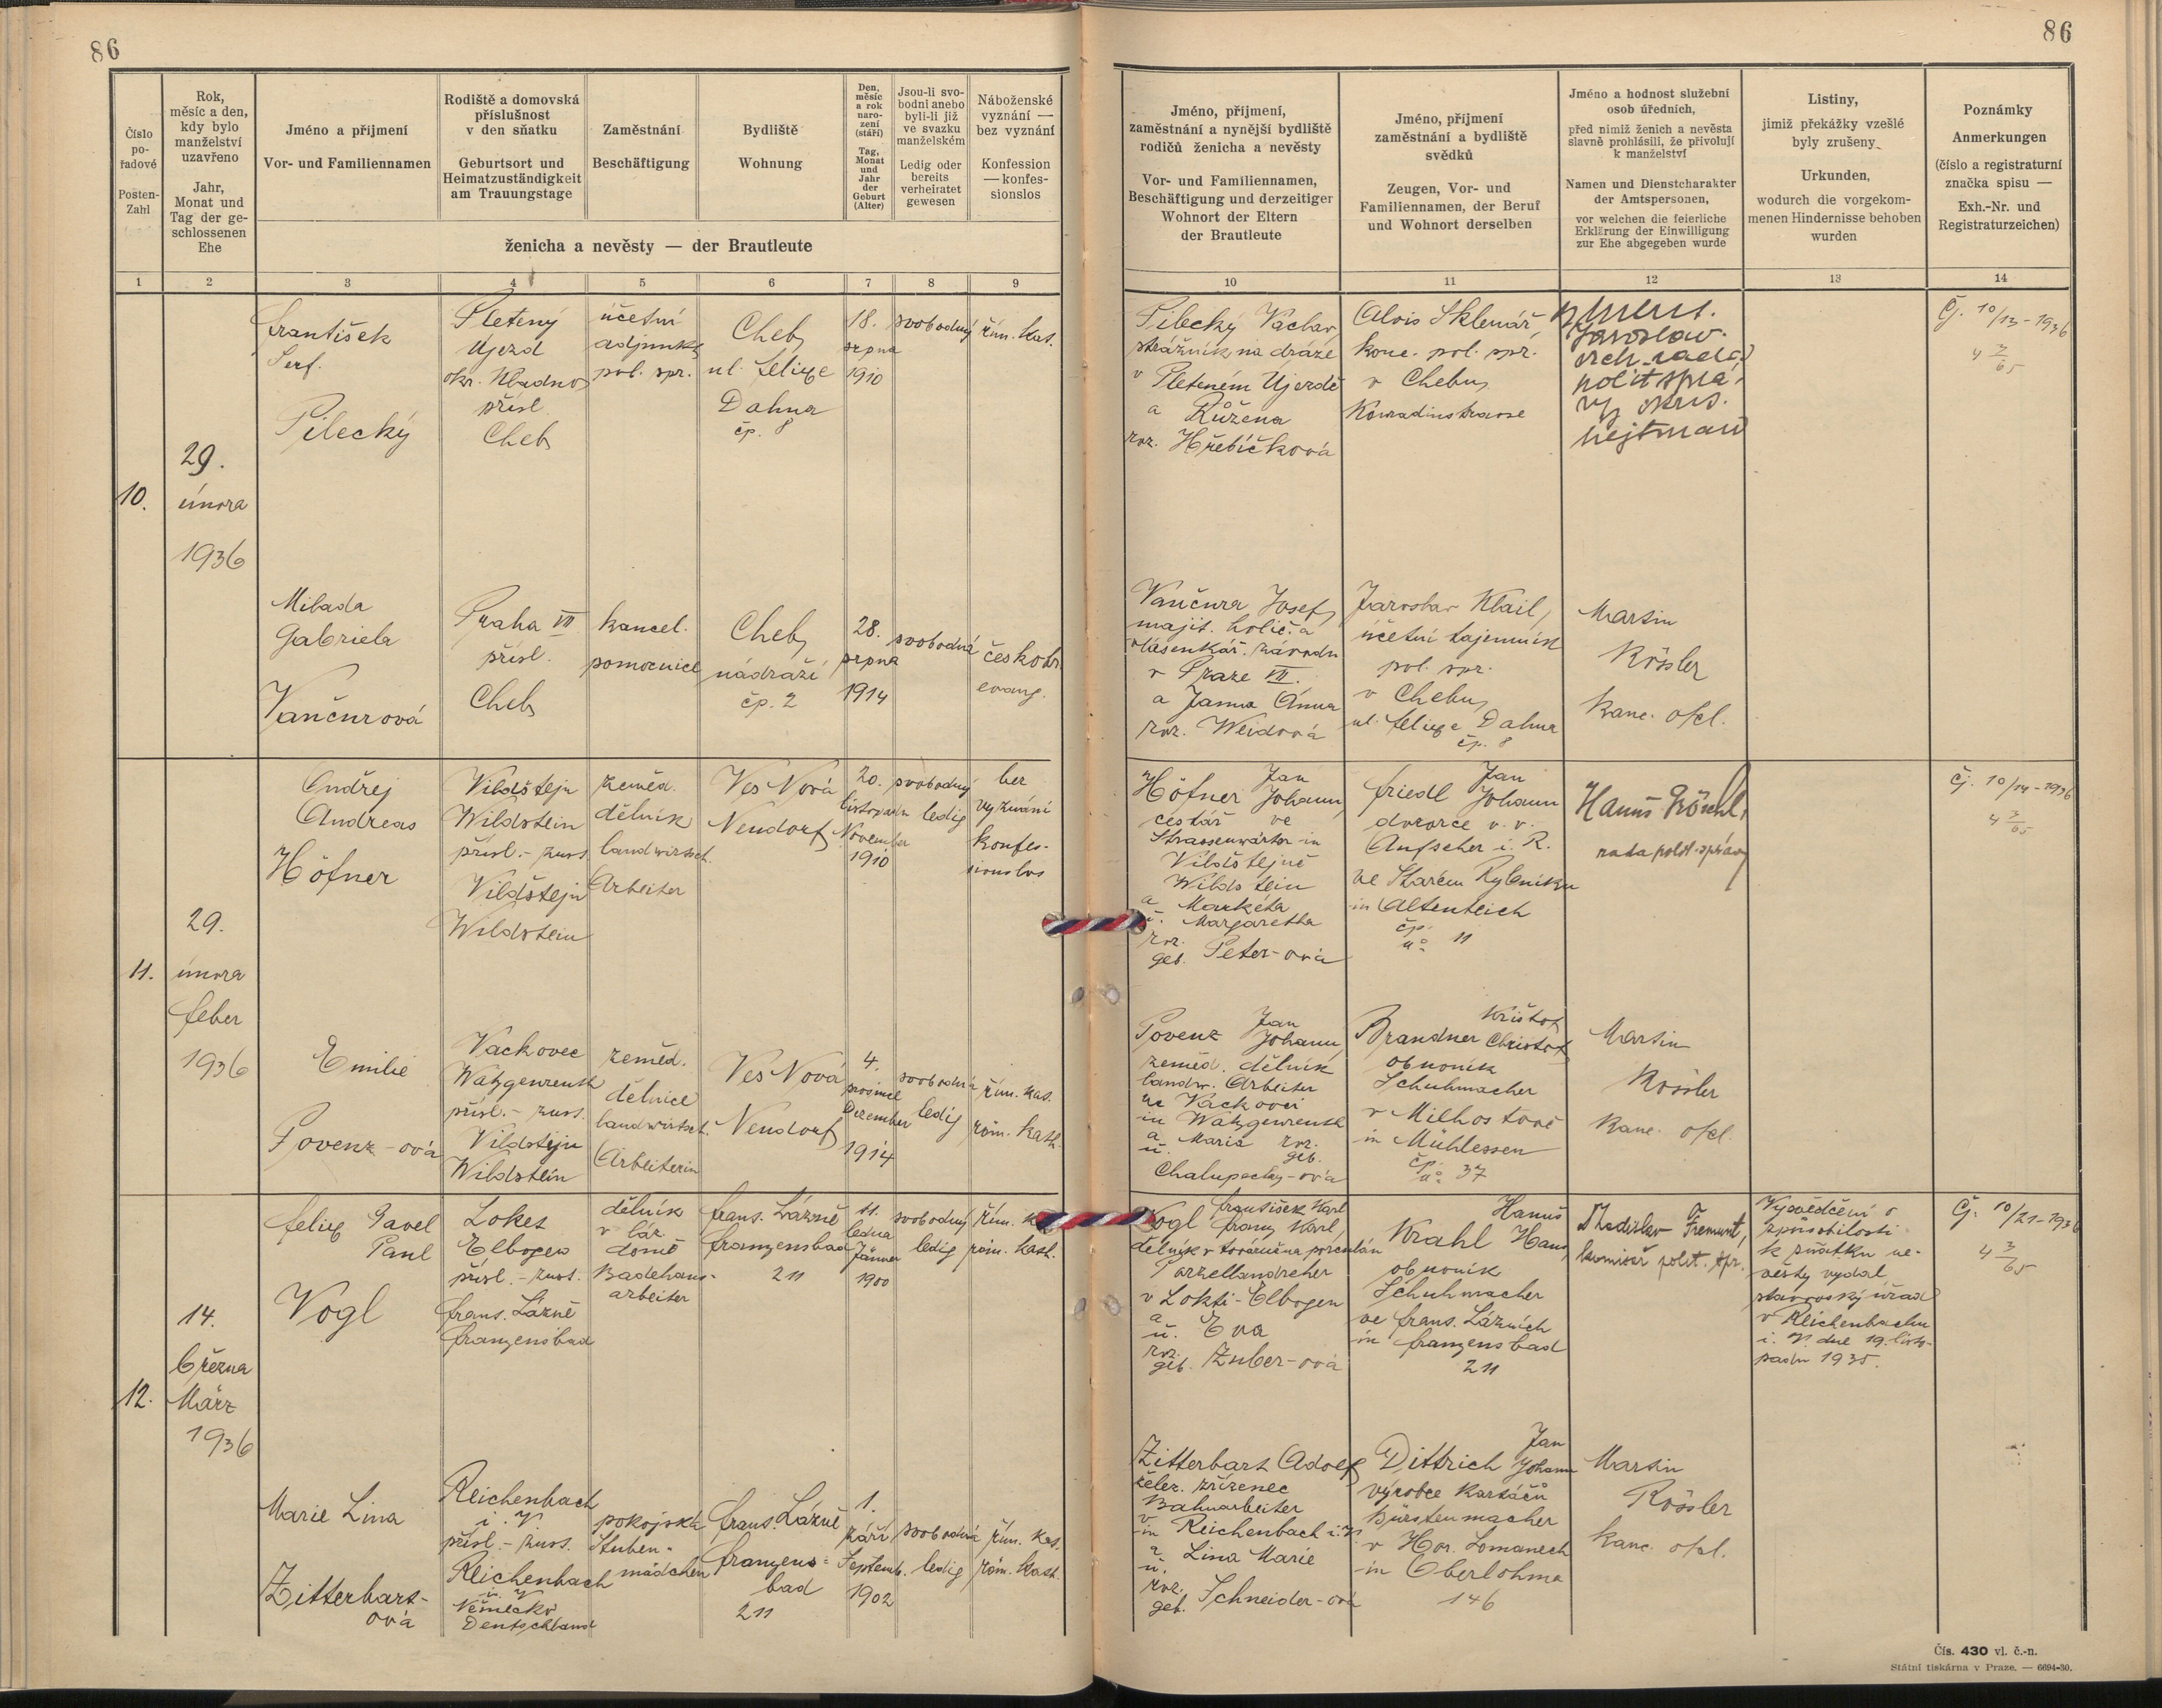 86
86
Číslo
po-
řadové
Posten-
Zahl
Rok,
měsíc a den,
kdy bylo
manželství
uzavřeno
Jahr,
Monat und
Tag der ge-
schlossenen
Ehe
Jméno a přijmení
Vor- und Familiennamen
Rodiště a domovská
příslušnost
v den sňatku
Geburtsort und
Heimatzuständigkeit
am Trauungstage
Zaměstnání
Beschäftigung
Bydliště
Wohnung
Den,
měsíc
a rok
naro-
zení
(stáří)
Tag,
Monat
und
Jahr
der
Geburt
(Alter)
Jsou-li svo-
bodni anebo
byli-li již
ve svazku
manželském
Ledig oder
bereits
verheiratet
gewesen
Náboženské
vyznání —
bez vyznání
Konfession
— konfes-
sionslos
ženicha a nevěsty — der Brautleute
Jméno, přijmení,
zaměstnání a nynější bydliště
rodičů ženicha a nevěsty
Vor- und Familiennamen,
Beschäftigung und derzeitiger
Wohnort der Eltern
der Brautleute
Jméno, přijmení
zaměstnání a bydliště
svědků
Zeugen, Vor- und
Familiennamen, der Beruf
und Wohnort derselben
Jméno a hodnost služební
osob úředních,
před nimiž ženich a nevěsta
slavně prohlásili, že přivolují
k manželství
Namen und Dienstcharakter
der Amtspersonen,
vor welchen die feierliche
Erklärung der Einwilligung
zur Ehe abgegeben wurde
Listiny,
jimiž překážky vzešlé
byly zrušeny
Urkunden,
wodurch die vorgekom-
menen Hindernisse behoben
wurden
Poznámky
Anmerkungen
(číslo a registraturní
značka spisu —
Exh.-Nr. und
Registraturzeichen)
1 2 3 4 5 6 7 8 9 10 11 12 13 14
10.
29.
února
1936
František
Serf.
Pilecký
Pletený
Ujezd
okr. Kladno
přísl.
Cheb
účetní
adjunkt
pol. spr.
Cheb
ul. Felixe
Dahna
čp. 8
18.
srpna
1910
svobodný
řím. kat.
Pilecký Václav
strážník na dráze
v Pleteném Ujezdě
a Růžena
roz. Hřebíčková
Alois Sklenář,
konc. pol. spr.
v Chebu
Konradinstrasse
Jaroslav
vrch. rada
polit. sprá-
vy okres.
hejtman
Čj. 10/13-1936
4 3/65
Milada
Gabriela
Vančurová
Praha VII
přísl.
Cheb
kancel.
pomocnice
Cheb
nádraží
čp. 2
28.
srpna
1914
svobodná
českobr
evang.
Vančura Josef
majit. holič. a
vlásenkář. závodu
v Praze VII.
a Janna Anna
roz. Weidová
Jaroslav Klail,
účetní tajemník
pol. spr.
v Chebu
ul. Felixe Dahna
čp. 8
Martin
Rössler
kanc. ofcl.
11.
29.
února
Feber
1936
Ondřej
Andreas
Höfner
Vildštejn
Wildstein
přísl. - zust.
Vildštejn
Wildstein
zeměd.
dělník
landwirtsch.
Arbeiter
Ves Nová
Neudorf
20.
listopadu
November
1910
svobodný
ledig
bez
vyznání
konfes-
sionslos
Jan
Höfner Johann,
cestář ve
Strassenwärter in
Vildštejně
Wildstein
a Markéta
u. Margaretha
roz.
geb. Peter-ová
Jan
Friedl Johann
dozorce v. v.
Aufseher i. R.
ve Starém Rybníku
in Altenteich
čp.
No 11
Hanuš
rada polit. správy
Čj. 10/14-1936
4 3/65
Emilie
Povenz-ová
Vackovec
Watzgenreuth
přísl. - zust.
Vildštejn
Wildstein
zeměd.
dělnice
landwirtsch.
Arbeiterin
Ves Nová
Neudorf
4.
prosince
Dezember
1914
svobodná
ledig
řím. kat.
röm. kath.
Jan
Povenz Johann,
zeměd. dělník
landw. Arbeiter
ve Vackovci
in Watzgenreuth
a Maria roz.
u. geb.
Chalupecky-ová
Krištof
Brandner Christof
obuvník
Schuhmacher
v Milhostově
in Mühlessen
čp.
No 37
Martin
Rössler
kanc. ofcl.
12.
14.
března
März
1936
Felix Pavel
Paul
Vogl
Loket
Elbogen
přísl. - zust.
Frant. Lázně
Franzensbad
dělník
v láz.
domě
Badehaus-
arbeiter
Frant. Lázně
Franzensbad
211
11.
ledna
Jänner
1900
svobodný
ledig
řím. kat.
röm. kath.
František Karl
Vogl Franz Karl,
dělník v továrně na porcelán
Porzellandreher
v Lokti - Elbogen
a
u. Eva
roz.
geb. Zuber-ová
Hanuš
Krahl Hans
obuvník
Schuhmacher
ve Frant. Lázních
in Franzensbad
211
Vladislav Fremunt,
komisař polit. spr.
Vysvědčení o
způsobilosti
k sňatku ne-
věsty vydal
stavovský úřad
v Reichenbachu
i. V. dne 19. listo-
padu 1935.
Čj. 10/21-1936
4 3/65
Marie Lina
Zitterbart-
ová
Reichenbach
i. V.
přísl. - zust.
Reichenbach
i. V.
Německo
Deutschland
pokojská
Stuben-
mädchen
Frant. Lázně
Franzens-
bad
211
1.
září
Septemb.
1902
svobodná
ledig
řím. kat.
röm. kath.
Zitterbart Adolf
želez. zřízenec
Bahnarbeiter
v
in Reichenbach i. V.
a Lina Marie
u.
roz.
geb. Schneider-ová
Jan
Dittrich Johann
výrobce kartáčů
Bürstenmacher
v Hor. Lomanech
in Oberlohma
146
Martin
Rössler
kanc. ofcl.
Čís. 430 vl. č.-n.
Státní tiskárna v Praze. — 6694-30.